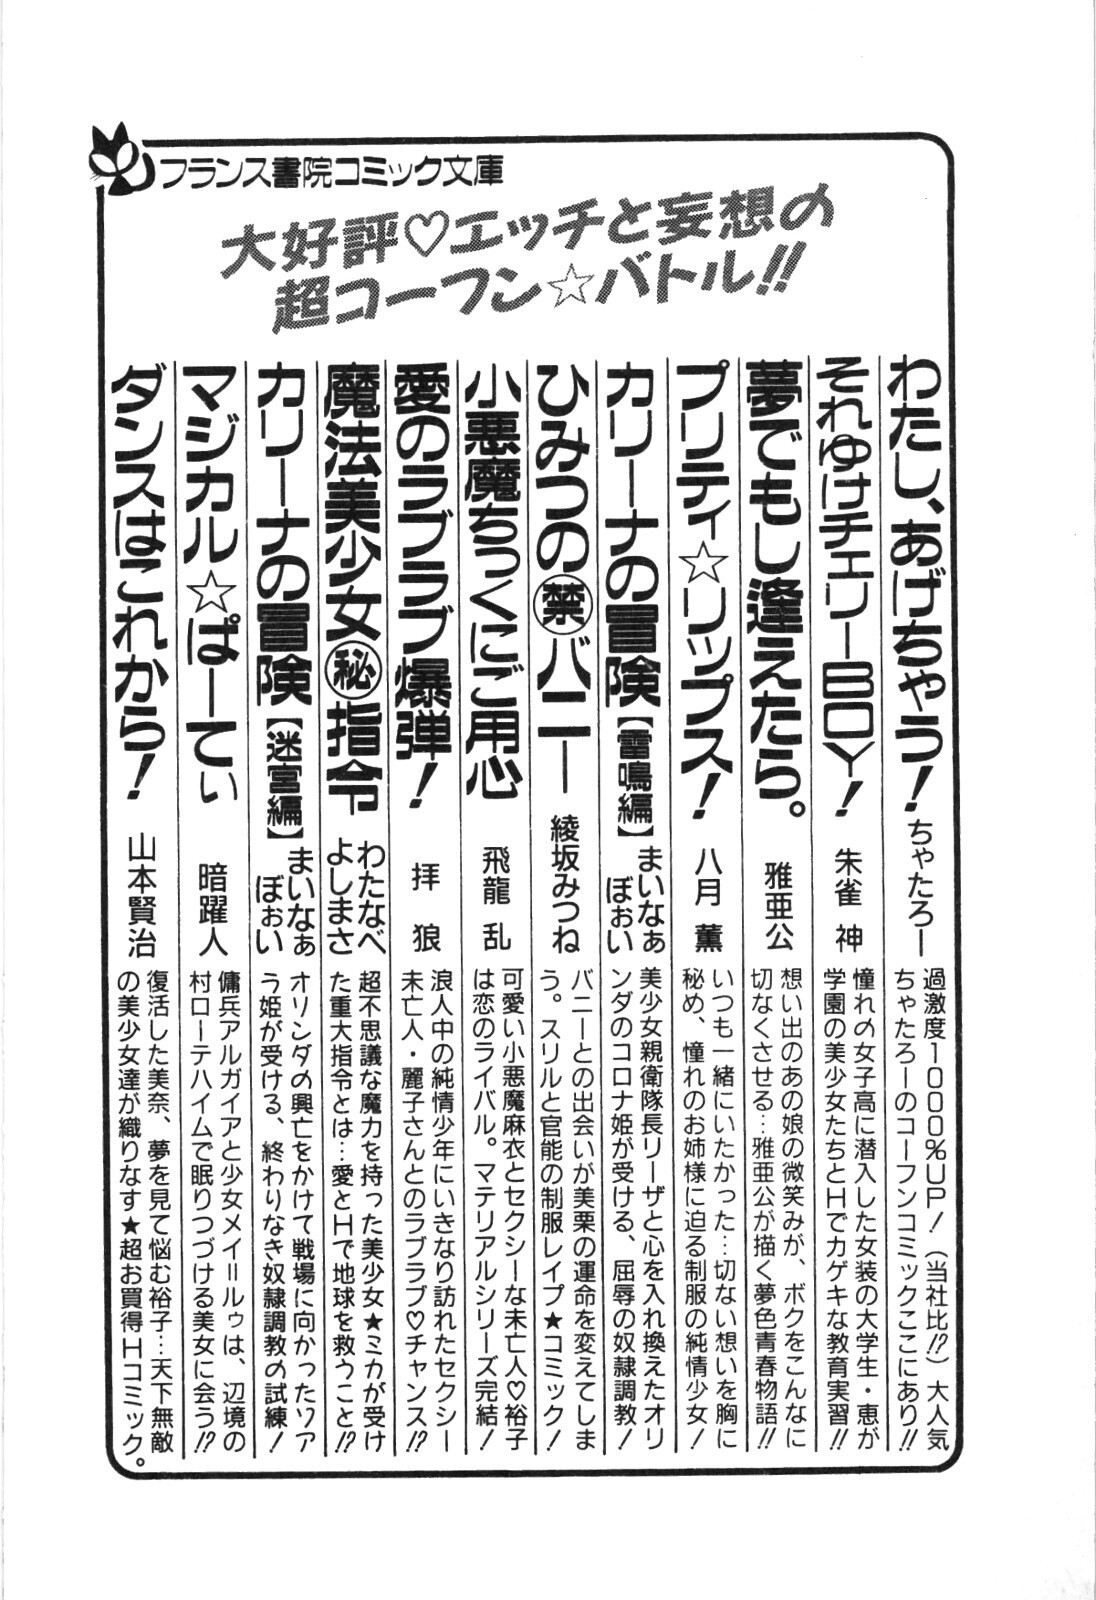 フランス書院コミック文庫
大好評♡エッチと妄想の
超コーフン☆バトル!!
わたし、あげちゃう!
ちゃたろー
過激度1000%UP!(当社比!?)大人気
ちゃたろーのコーフンコミックここにあり!!
それゆけチェリーBOY!
朱雀 神
憧れの女子高に潜入した女装の大学生・恵が
学園の美少女たちとHでカゲキな教育実習!!
夢でもし逢えたら。
雅亜公
想い出のあの娘の微笑みが、ボクをこんなに
切なくさせる…雅亜公が描く夢色青春物語!!
プリティ☆リップス!
八月 薫
いつも一緒にいたかった…切ない想いを胸に
秘め、憧れのお姉様に迫る制服の純情少女!
カリーナの冒険【雷鳴編】
まいなぁ
ぼぉい
美少女親衛隊長リーザと心を入れ換えたオリ
ンダのコロナ姫が受ける、屈辱の奴隷調教!
ひみつの㊙バニー
綾坂みつね
バニーとの出会いが美栗の運命を変えてしま
う。スリルと官能の制服レイプ★コミック!
小悪魔ちっくにご用心
飛龍 乱
可愛い小悪魔麻衣とセクシーな未亡人♡裕子
は恋のライバル。マテリアルシリーズ完結!
愛のラブラブ爆弾!
拝 狼
浪人中の純情少年にいきなり訪れたセクシー
未亡人・麗子さんとのラブラブ♡チャンス!?
魔法美少女㊙指令
わたなべ
よしまさ
超不思議な魔力を持った美少女★ミカが受け
た重大指令とは…愛とHで地球を救うこと!?
カリーナの冒険【迷宮編】
まいなぁ
ぼぉい
オリンダの興亡をかけて戦場に向かったソア
う姫が受ける、終わりなき奴隷調教の試練!
マジカル☆ぱーてぃ
暗躍人
傭兵アルガイアと少女メイ=ルゥは、辺境の
村ローテハイムで眠りつづける美女に会う!?
ダンスはこれから!
山本賢治
復活した美奈、夢を見て悩む裕子…天下無敵
の美少女達が織りなす★超お買得Hコミック。